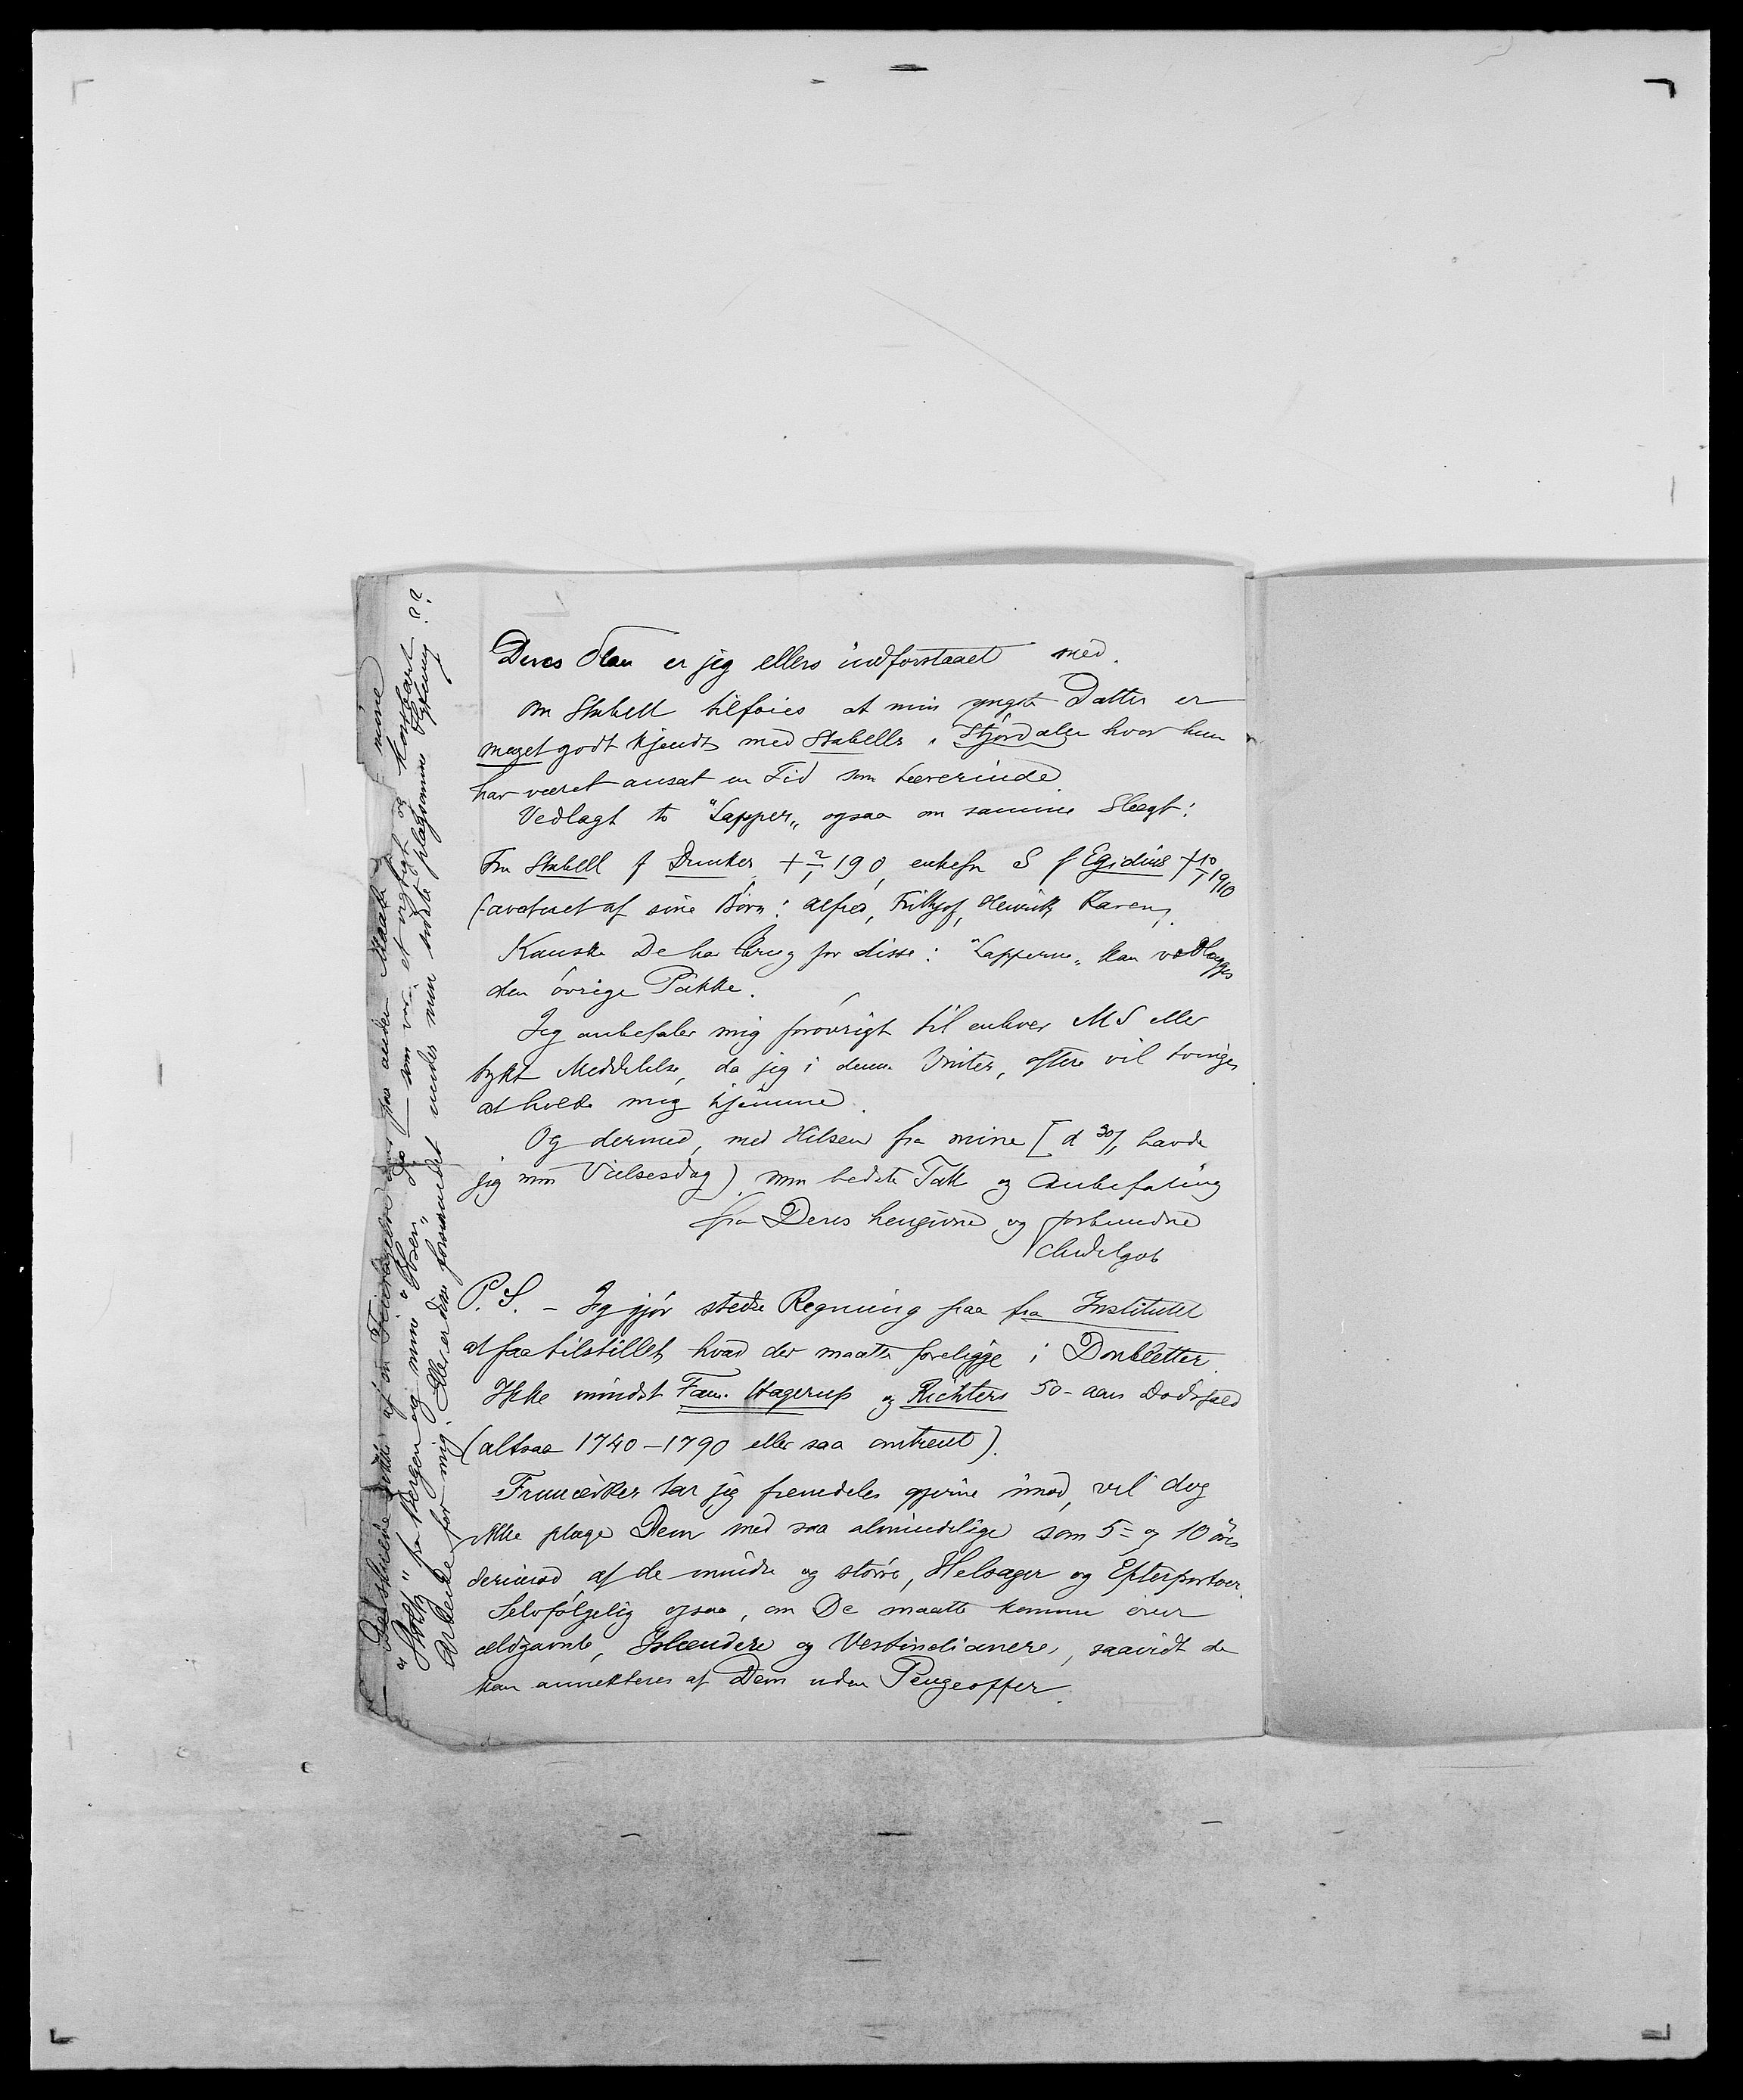 Deres Plan er jeg ellers indforstaaet med.
Om Stabell tilføies at min yngste Datter er
meget godt kjendt med Stabells i Stjørdalen hvor hun
har været ansat en Tid som Lærerinde.
Vedlagt to "Lapper" ogsaa om samme Slægt:
Fru Stabell f Dunker + 2/1 190, enkefru S f Egidius + 10/1 1910
(averteret af sine Børn: Alfred, Frithjof, Henrik Karen).
Kanske De har Brug for disse: "Lapperne" kan vedlægges
den øvrige Pakke.
Jeg anbefaler mig forøvrigt til enhver MS eller
trykt Meddelelse, da jeg i denne Vinter, oftere vil tvinges
at holde mig hjemme.
Og dermed, med Hilsen fra mine [d 30/1 havde
jeg min Vielsesdag) min bedste Tak og Anbefaling
fra Deres hengivne og forbundne
P.S. - Jeg gjør stedse Regning paa fra Institutet
at faa tilstillet hvad der maatte foreligge i Doubletter.
Ikke mindst Fam. Hagerup og Richters 50-aars Dødsfald
(altsaa 1740-1790 eller saa omtrent).
Frimærker tar jeg fremdeles gjerne imod, vil dog
ikke plage Dem med saa almindelige som 5= og 10 øres
derimod af de mindre og større, Helsager og Efterportoer.
Selvfølgelig ogsaa, om De maatte komme over
ældgamle, Islændere og Vestindianere, saavidt de
kan annekteres af Dem uden Pengeoffer.
paa anden Maade mine
fra Bergen og mine som var et vigtigt og kostbart
Arbeide for mig. Eller er disse forsvundet under min sidste plagsomme Flytning??